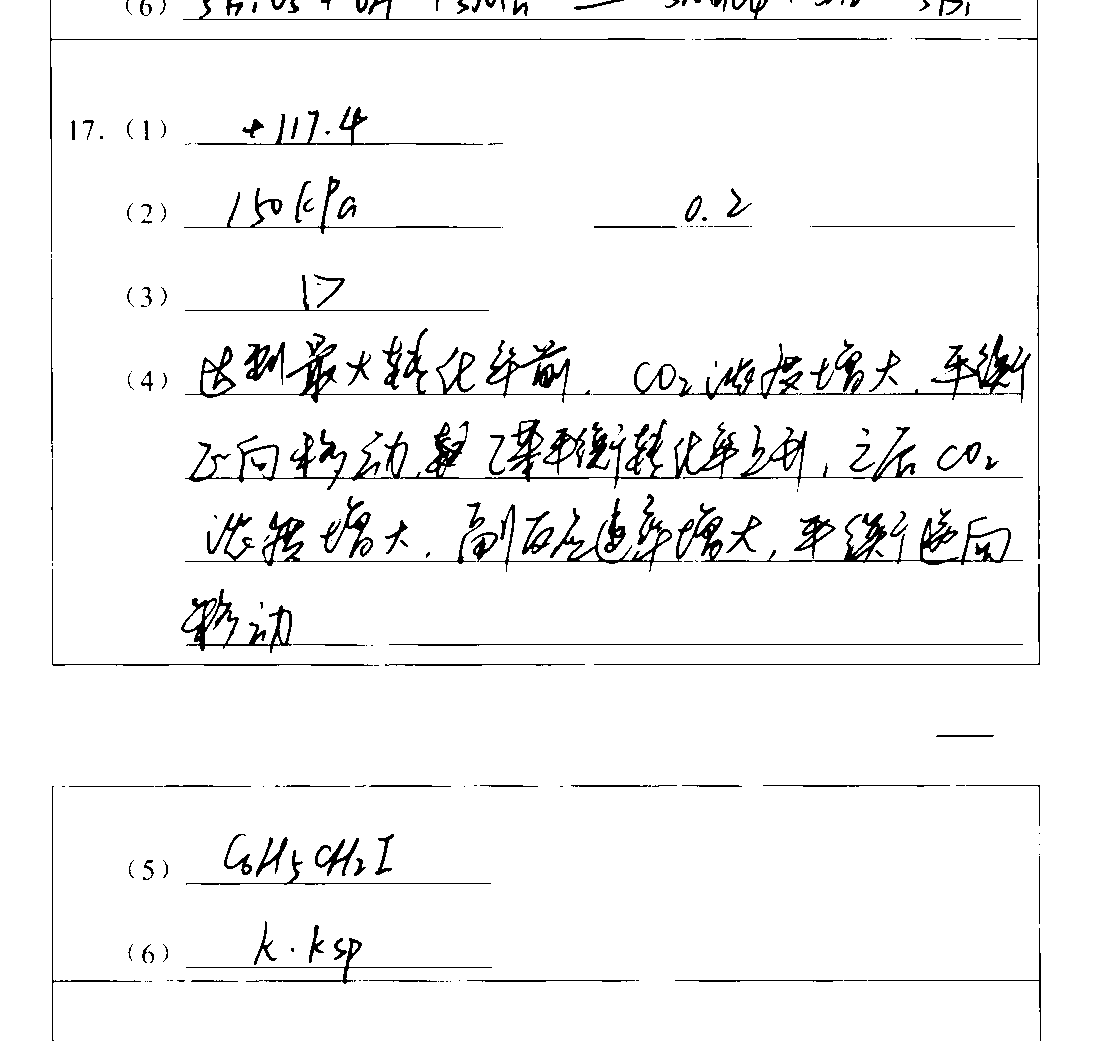 (6)
17. (1) +117.4
(2) 150kPa 0.2
(3) 17
(4) 达到最大转化率前, CO₂浓度增大, 平衡
正向移动, 乙苯平衡转化率上升, 之后CO₂
浓度增大, 副反应速率增大, 平衡逆向
移动
(5) C₆H₅CH₂I
(6) k·ksp